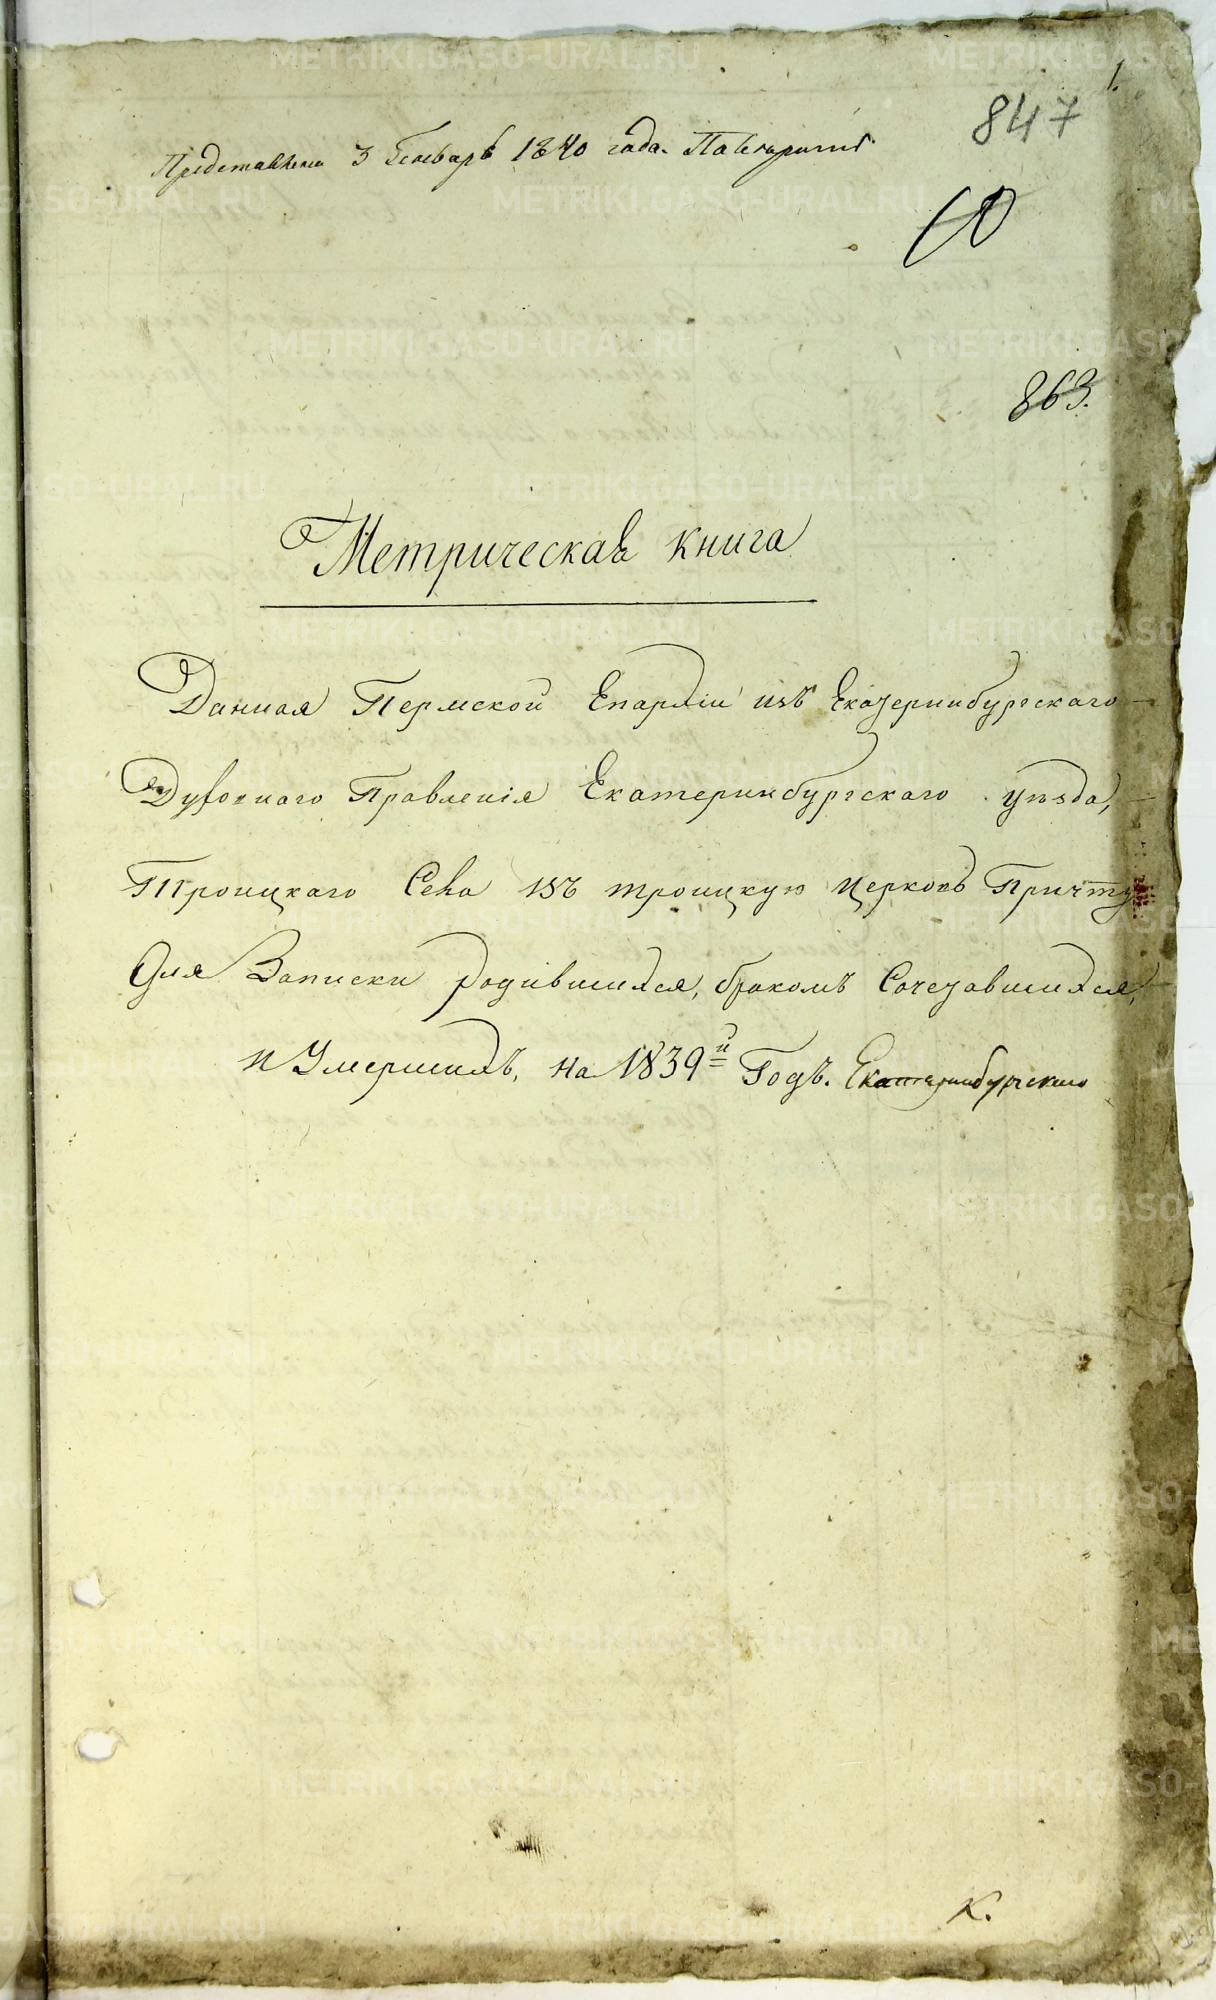 1.
847
Представлена 3 Генваря 1840 года.
10
863.
Метрическая книга
Данная Пермской Епархіи изъ Екатеринбургскаго
Духовнаго Правленія Екатеринбургскаго уѣзда,
Троицкаго Села въ троицкую церковь Причту
Для Записки родившихся, бракомъ Сочетавшихся,
и Умершихъ, на 1839й Годъ. Екатеринбургскаго
К.
METRIKI.GASO-URAL.RU